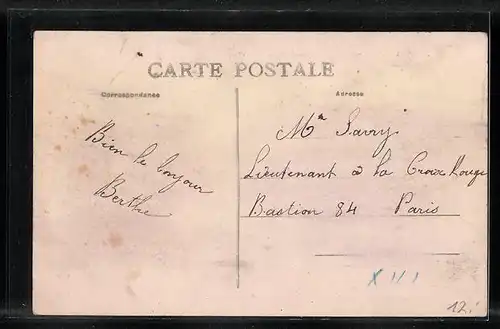 CARTE POSTALE
Correspondance
Adresse
Bien le bonjour
Berthe
Mr Savry
Lieutenant à la Croix Rouge
Bastion 84 Paris
X 1/1
12.